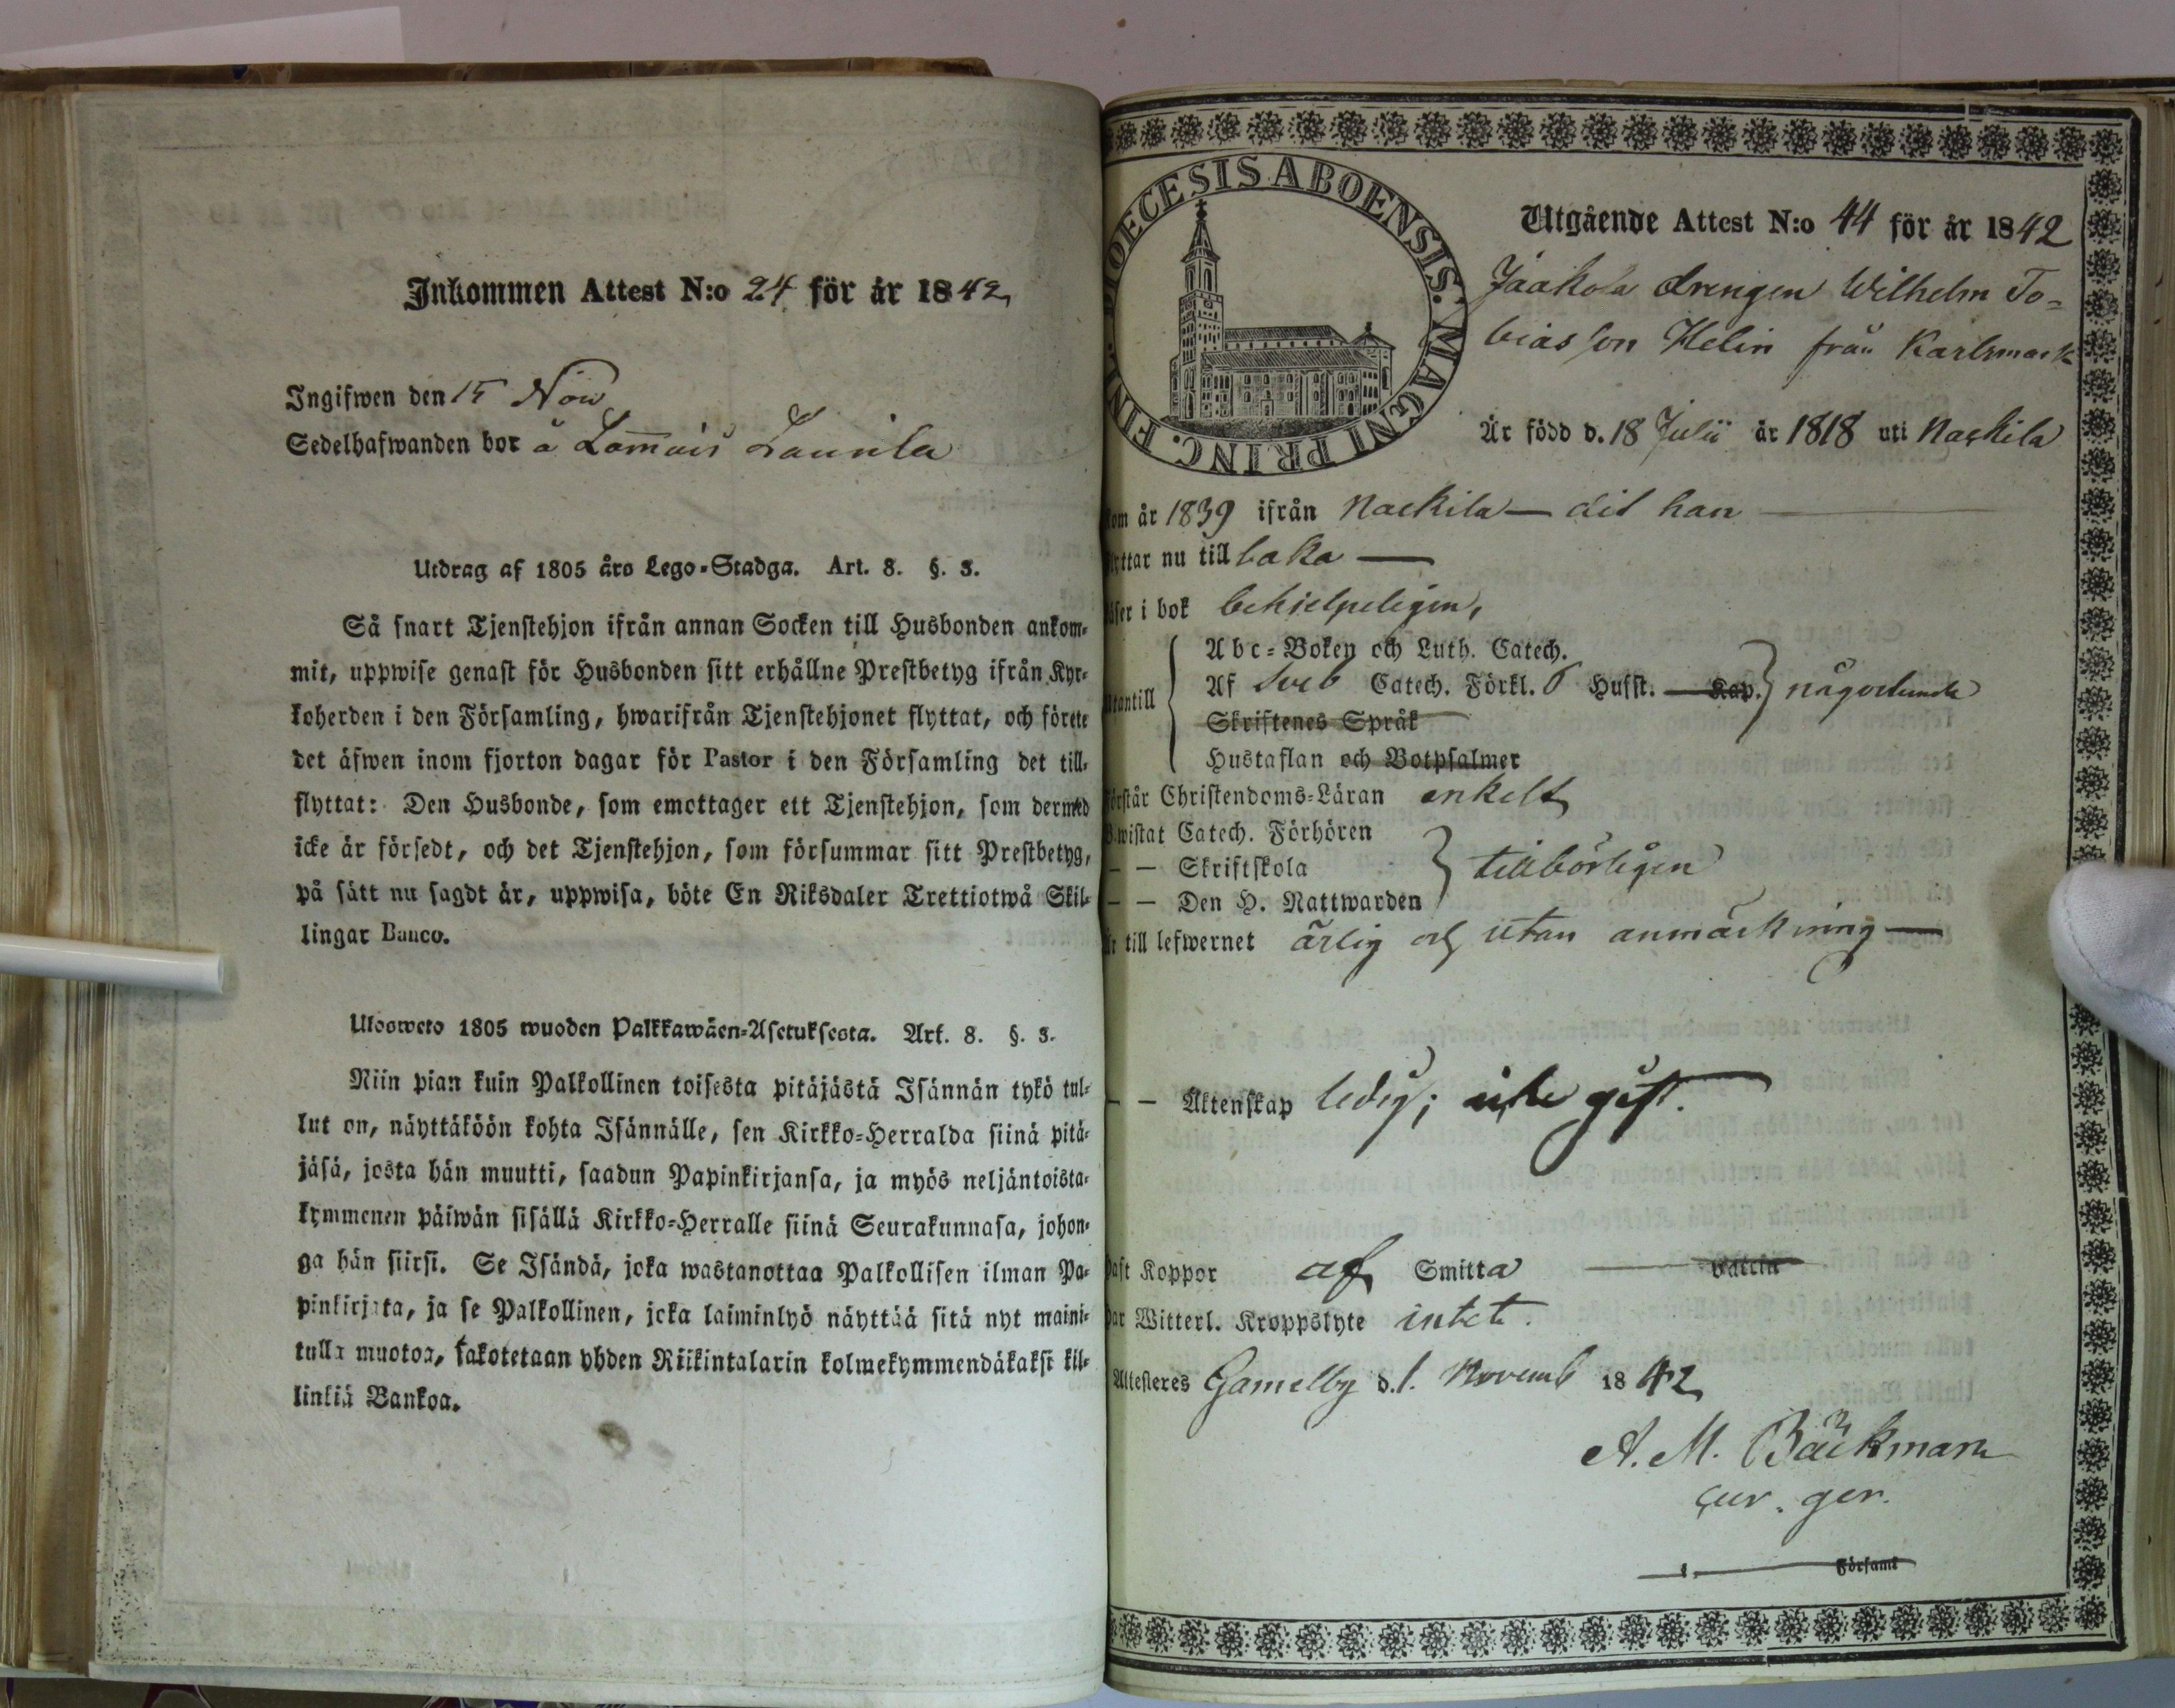 Inkommen Attest N:o 24 för år 1842
Ingifwen den 15 Nov
Sedelhafwanden bor å Lammais Launila
Utdrag af 1805 års Lego-Stadga. Art. 8. §. 3.
Så snart Tjenstehjon ifrån annan Socken till Husbonden ankom-
mit, uppwise genast för Husbonden sitt erhållne Prestbetyg ifrån Kyr-
koherden i den Församling, hwarifrån Tjenstehjonet flyttat, och förete
det äfwen inom fjorton dagar för Pastor i den Församling det till-
flyttat: Den Husbonde, som emottager ett Tjenstehjon, som dermed
icke är försedt, och det Tjenstehjon, som försummar sitt Prestbetyg,
på sätt nu sagdt är, uppwisa, böte En Riksdaler Trettiotwå Skil-
lingar Banco.
Ulosweto 1805 wuoden Palkkawäen-Asetuksesta. Art. 8. §. 3.
Niin pian kuin Palkollinen toisesta pitäjästä Isännän tykö tul-
lut on, näyttäköön kohta Isännälle, sen Kirkko-Herralda siinä pitä-
jäsä, josta hän muutti, saadun Papinkirjansa, ja myös neljäntoista-
kymmenen päiwän sisällä Kirkko-Herralle siinä Seurakunnasa, johon-
ga hän siirsi. Se Isändä, joka wastanottaa Palkollisen ilman Pa-
pinkirjata, ja se Palkollinen, joka laiminlyö näyttää sitä nyt maini-
tulla muotoa, sakotetaan yhden Riikintalarin kolmekymmendäkaksi kil-
linkiä Bankoa.
DIOECESIS ABOENSIS. MAGNI PRINC. FINL.
Utgående Attest N:o 44 för år 1842
Jaakola drengen Wilhelm To-
biasson Helin från Karlsmark
Är född d. 18 Julii år 1818 uti Nackila
kom år 1839 ifrån Nackila — dit han —
flyttar nu till baka —
läser i bok behjelpeligen,
Utantill
Abc-Boken och Luth. Catech.
Af Sveb Catech. Förkl. 6 Hufst. — Kap. någorlunda
Skriftenes Språk
Hustaflan och Botpsalmer
förstår Christendoms-Läran enkelt
Bewistat Catech. Förhören
— — Skriftskola tillbörligen
— — Den H. Nattwarden
Är till lefwernet ärlig och utan anmärkning —
— — Äktenskap ledig; icke gift.
haft Koppor af Smitta —
har Witterl. Kroppslyte intet.
Attesteres Gamelby d. 1. Novemb 1842
A. M. Bäckman
cur. ger.
i — Församl